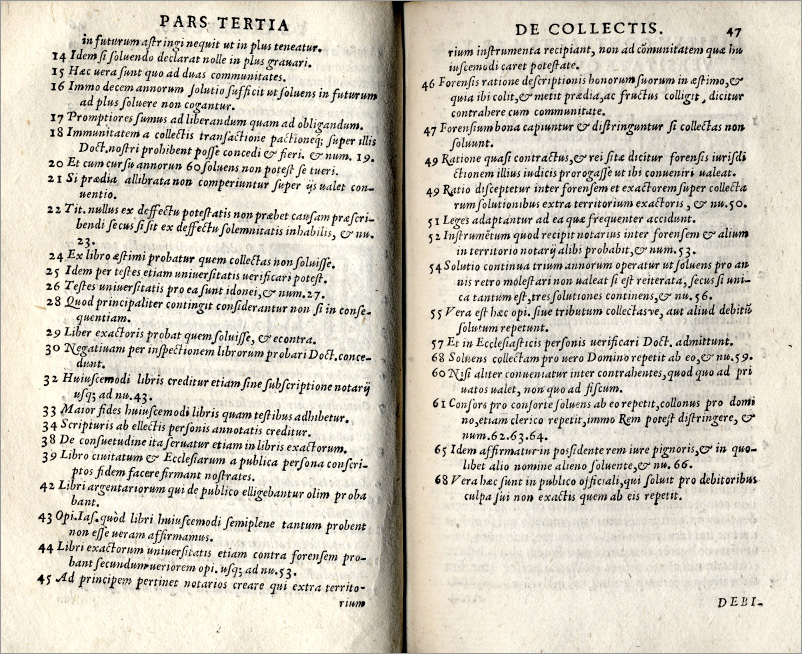 PARS TERTIA
in futurum astringi nequit ut in plus teneatur.
14 Idem si soluendo declarat nolle in plus grauari.
15 Hæc uera sunt quo ad duas communitates.
16 Immo decem annorum solutio sufficit ut soluens in futurum
ad plus soluere non cogantur.
17 Promptiores sumus ad liberandum quam ad obligandum.
18 Immunitatem a collectis transactione pactioneq; super illis
Doct. nostri prohibent posse concedi & fieri. & num. 19.
20 Et cum cursu annorum 60 soluens non potest se tueri.
21 Si prædia allibrata non comperiuntur super ijs ualet con-
uentio.
22 Tit. nullus ex deffectu potestatis non præbet causam præscri-
bendi secus si sit ex deffectu solemnitatis inhabilis, & nu.
23.
24 Ex libro æstimi probatur quem collectas non soluisse.
25 Idem per testes etiam uniuersitatis uerificari potest.
26 Testes uniuersitatis pro ea sunt idonei, & num. 27.
28 Quod principaliter contingit considerantur non si in conse-
quentiam.
29 Liber exactoris probat quem soluisse, & econtra.
30 Negatiuam per inspectionem librorum probari Doct. conce-
dunt.
32 Huiuscemodi libris creditur etiam sine subscriptione notarij
usq; ad nu. 43.
33 Maior fides huiuscemodi libris quam testibus adhibetur.
34 Scripturis ab ellectis personis annotatis creditur.
38 De consuetudine ita seruatur etiam in libris exactorum.
39 Libro ciuitatum & Ecclesiarum a publica persona conscri-
ptos fidem facere firmant nostrates.
42 Libri argentariorum qui de publico elligebantur olim proba
bant.
43 Opi. Ias. quòd libri huiuscemodi semiplene tantum probent
non esse ueram affirmamus.
44 Libri exactorum uniuersitatis etiam contra forensem pro-
bant secundum ueriorem opi. usq; ad nu. 53.
45 Ad principem pertinet notarios creare qui extra territo-
rium
DE COLLECTIS. 47
rium instrumenta recipiant, non ad cōmunitatem quæ hu
iuscemodi caret potestate.
46 Forensis ratione descriptionis bonorum suorum in æstimo, &
quia ibi colit, & metit prædia, ac fructus colligit, dicitur
contrahere cum communitate.
47 Forensium bona capiuntur & distringuntur si collectas non
soluunt.
49 Ratione quasi contractus, & rei sitæ dicitur forensis iurisdi
ctionem illius iudicis prorogasse ut ibi conueniri ualeat.
49 Ratio disceptetur inter forensem et exactorem super collecta
rum solutionibus extra territorium exactoris, & nu. 50.
51 Leges adaptantur ad ea quæ frequenter accidunt.
52 Instrumētum quod recipit notarius inter forensem & alium
in territorio notarij alibi probabit, & num. 53.
54 Solutio continua trium annorum operatur ut soluens pro an
nis retro molestari non ualeat si est reiterata, secus si uni-
ca tantum est, tres solutiones continens, & nu. 56.
55 Vera est hæc opi. siue tributum collectasve, aut aliud debitū
solutum repetunt.
57 Et in Ecclesiasticis personis uerificari Doct. admittunt.
68 Soluens collectam pro uero Domino repetit ab eo, & nu. 59.
60 Nisi aliter conueniatur inter contrahentes, quod quo ad pri
uatos ualet, non quo ad fiscum.
61 Consors pro consorte soluens ab eo repetit, collonus pro domi
no, etiam clerico repetit, immo Rem potest distringere, &
num. 62. 63. 64.
65 Idem affirmatur in possidente rem iure pignoris, & in quo-
libet alio nomine alieno soluente, & nu. 66.
68 Vera hæc sunt in publico officiali, qui soluit pro debitoribus
culpa sui non exactis quem ab eis repetit.
DEBI-